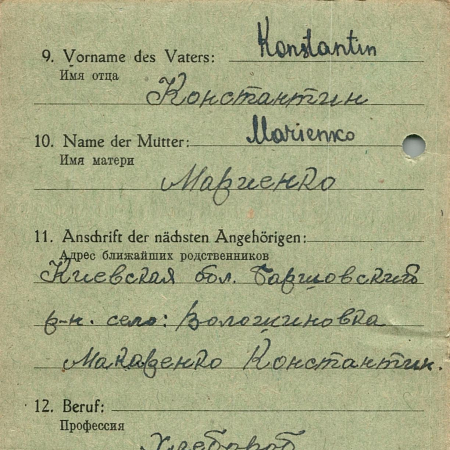 9. Vorname des Vaters: Konstantin
Имя отца
Константин
10. Name der Mutter: Marienko
Имя матери
Мариенко
11. Anschrift der nächsten Angehörigen:
Адрес ближайших родственников
Киевская
р-н. село: Волошиновка
Макаренко Константин.
12. Beruf:
Профессия
Хлебороб